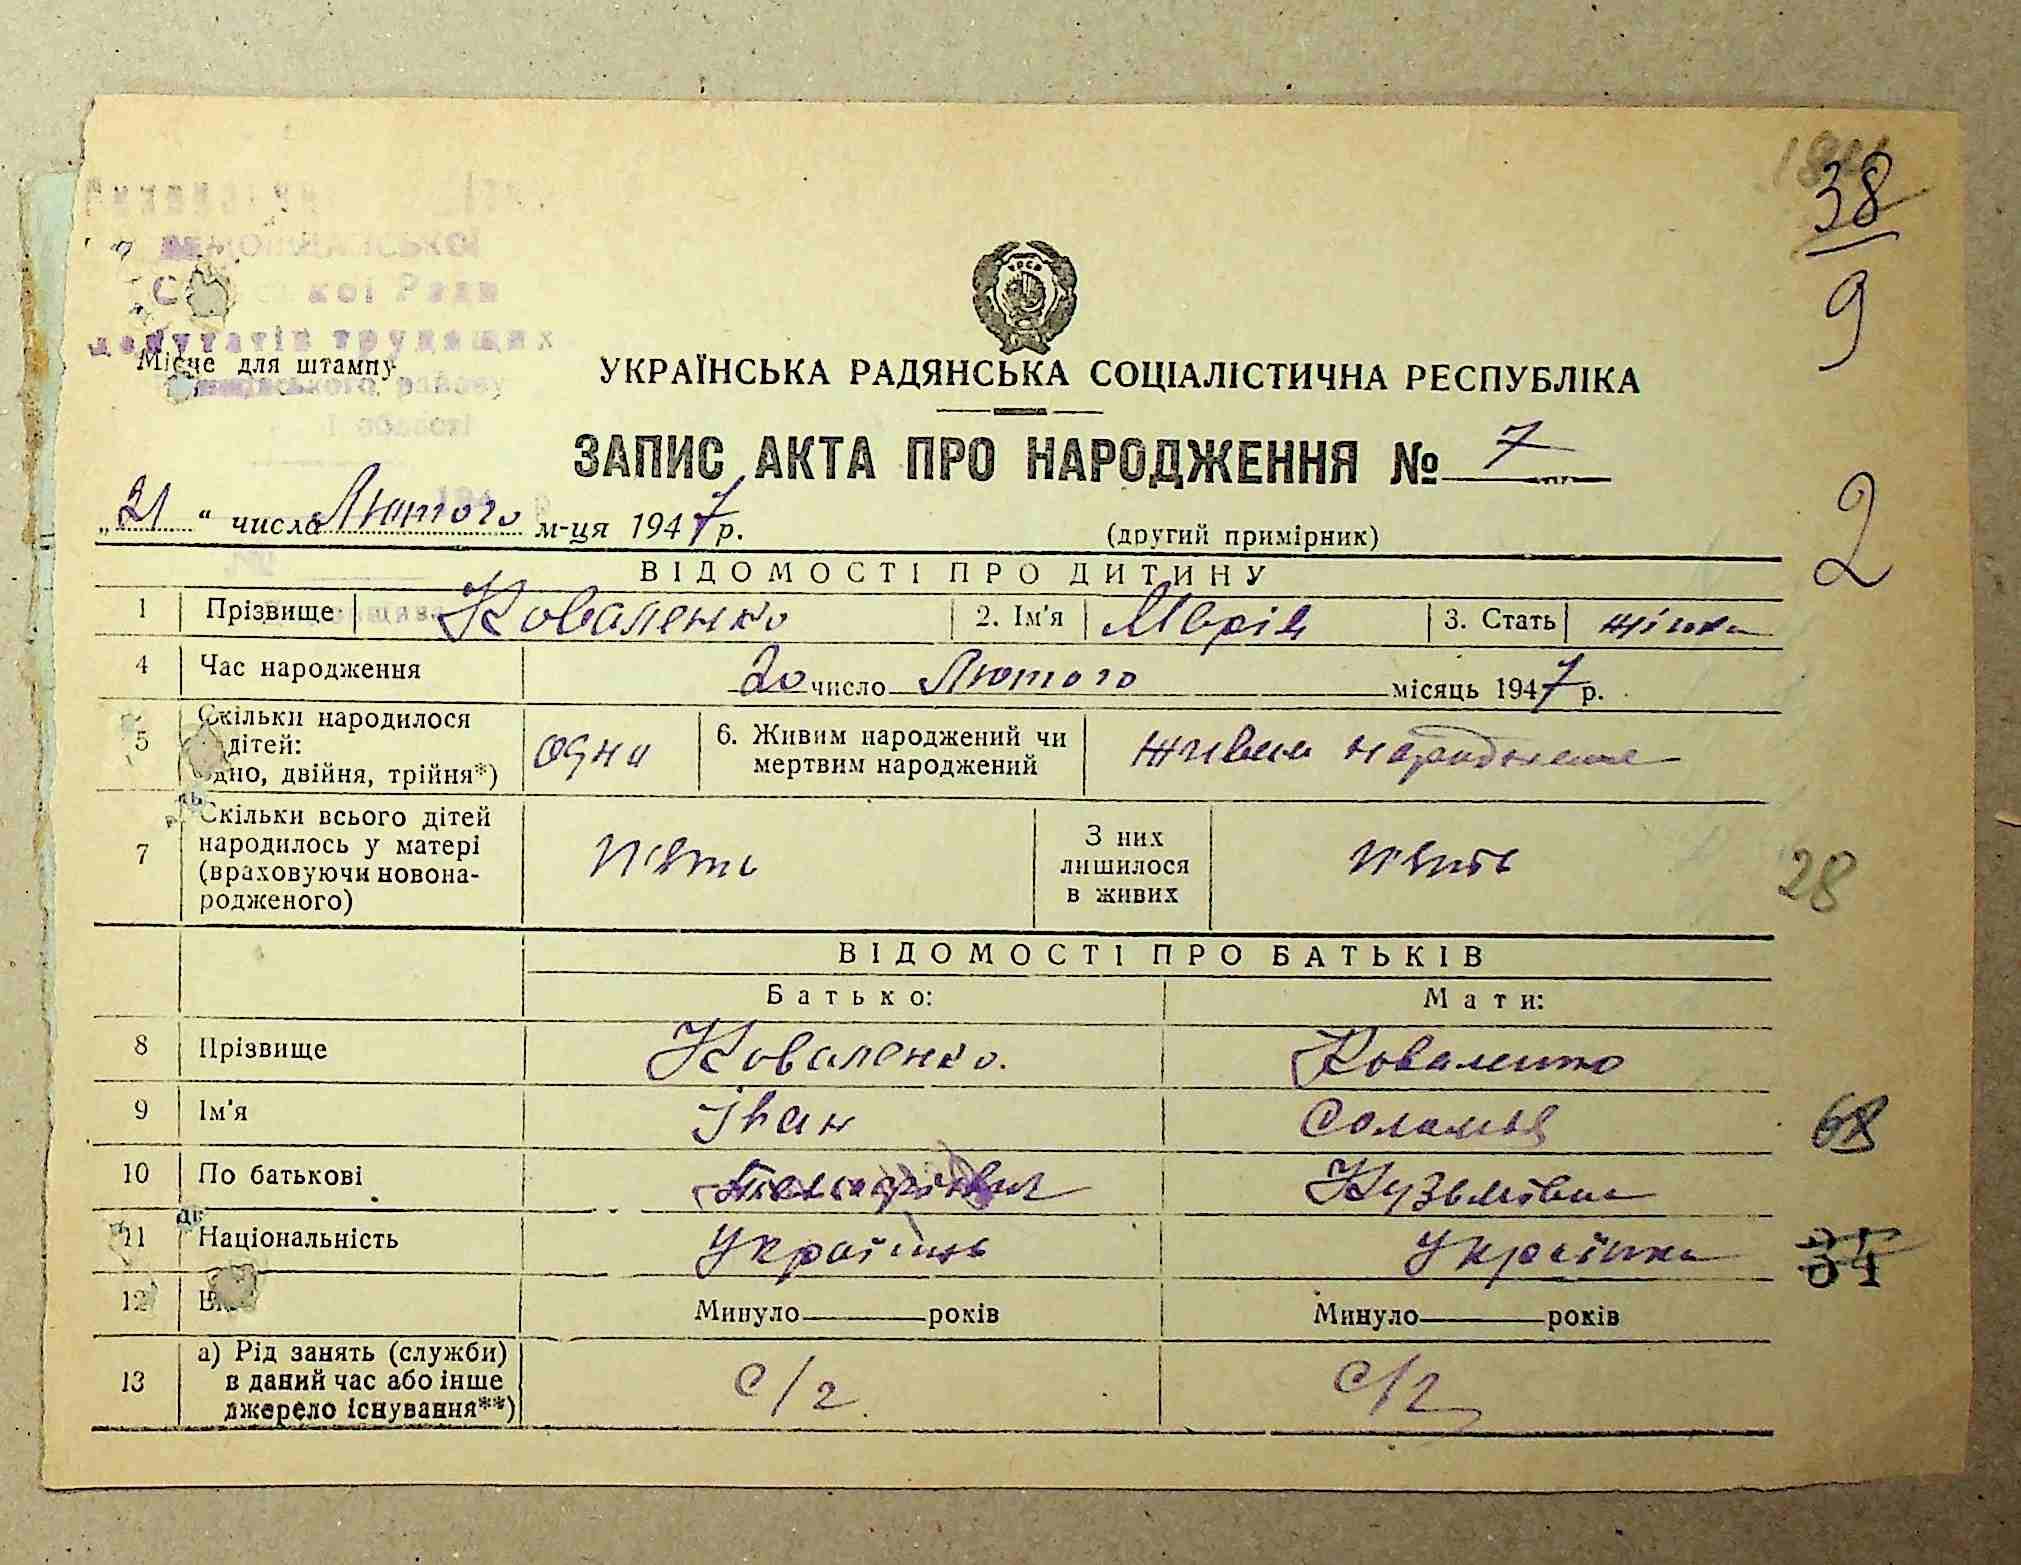 184
38
9
Виконавчий
Сільської Ради
депутатів трудящих
Місце для штампу
району
області
УКРАЇНСЬКА РАДЯНСЬКА СОЦІАЛІСТИЧНА РЕСПУБЛІКА
ЗАПИС АКТА ПРО НАРОДЖЕННЯ № 7
„21“ числа Лютого м-ця 1947 р.
(другий примірник)
2
ВІДОМОСТІ ПРО ДИТИНУ
1 Прізвище Коваленко 2. Ім'я Марія 3. Стать жінка
4 Час народження 20 число Лютого місяць 1947 р.
5 Скільки народилося дітей: одно, двійня, трійня*) одна 6. Живим народжений чи мертвим народжений живим народжена
7 Скільки всього дітей народилось у матері (враховуючи новонародженого) п'ять З них лишилося в живих п'ять
28
ВІДОМОСТІ ПРО БАТЬКІВ
Батько: Мати:
8 Прізвище Коваленко. Коваленко
9 Ім'я Іван Соломія
68
10 По батькові Кузьмівна
11 Національність Українець Українка
34
12 Вік Минуло років Минуло років
13 а) Рід занять (служби) в даний час або інше джерело існування**) с/г с/г